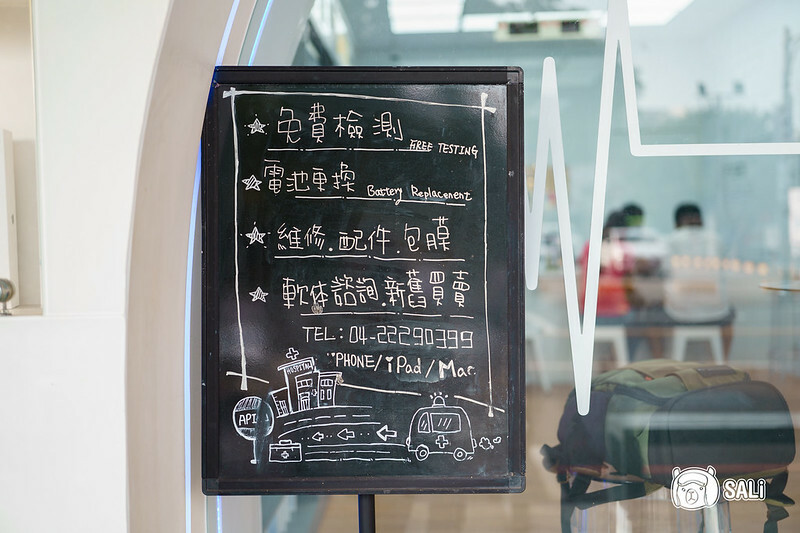 免費檢測
FREE TESTING
電池更換 Battery Replacement
維修.配件.包膜
軟体諮詢.新舊買賣
TEL:04-22290399
iPHONE/iPad/Mac.
HOSPITAL
API
SALi